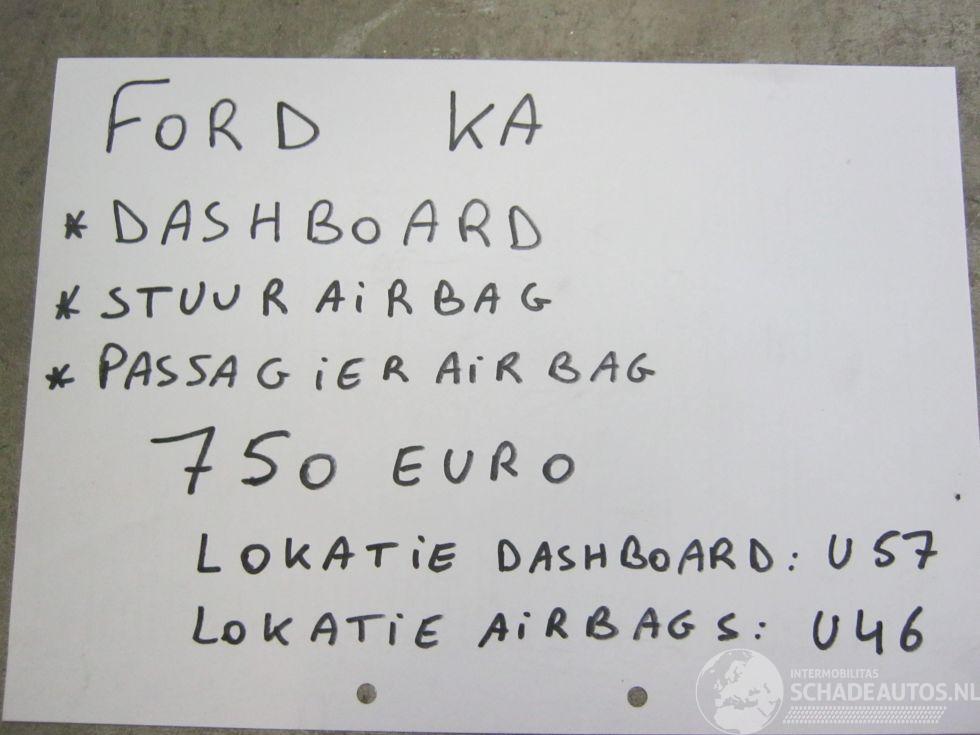 FORD KA
* DASHBOARD
* STUUR AiRBAG
* PASSAGiER AiRBAG
750 EURO
LOKATiE DASHBOARD: U57
LOKATiE AiRBAGS: U46
INTERMOBILITAS
SCHADEAUTOS.NL